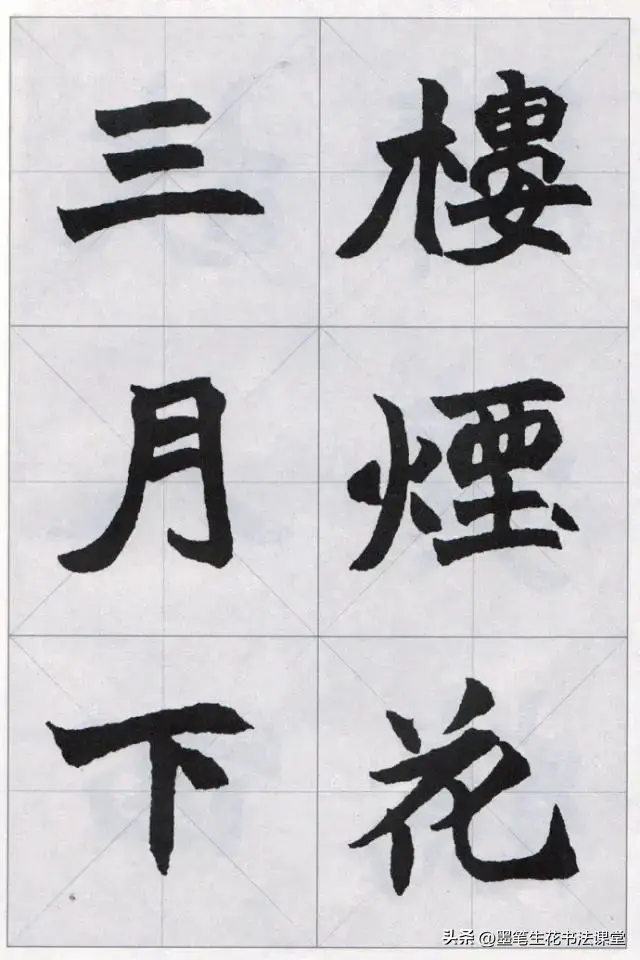 樓煙花
三月下
头条 @墨笔生花书法课堂